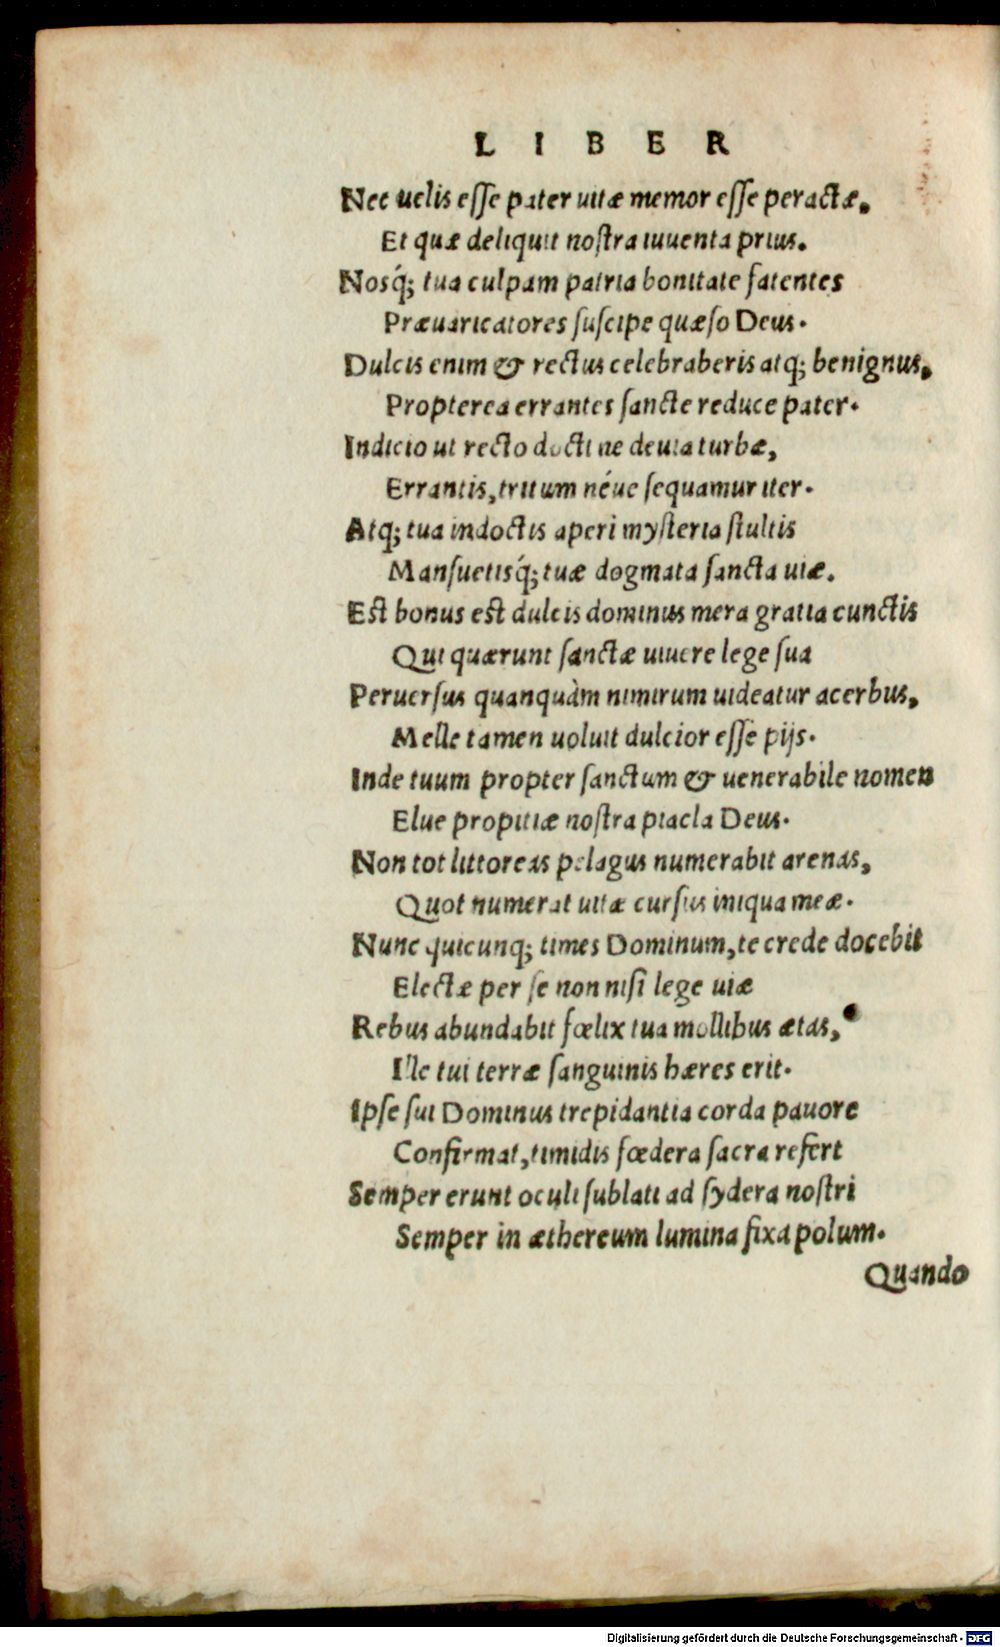 L I B E R
Nec uelis esse pater uitæ memor esse peractæ,
Et quæ deliquit nostra iuuenta prius.
Nosq́; tua culpam patria bonitate fatentes
Præuaricatores suscipe quæso Deus.
Dulcis enim & rectus celebraberis atq; benignus,
Propterea errantes sancte reduce pater.
Indicio ut recto docti ne deuia turbæ,
Errantis, tritum néue sequamur iter.
Atq; tua indoctis aperi mysteria stultis
Mansuetisq́; tuæ dogmata sancta uiæ.
Est bonus est dulcis dominus mera gratia cunctis
Qui quærunt sanctæ uiuere lege sua
Peruersus quanquàm nimirum uideatur acerbus,
Melle tamen uoluit dulcior esse pijs.
Inde tuum propter sanctum & uenerabile nomen
Elue propitiæ nostra piacla Deus.
Non tot littoreas pelagus numerabit arenas,
Quot numerat uitæ cursus iniqua meæ.
Nunc quicunq; times Dominum, te crede docebit
Electæ per se non nisi lege uiæ
Rebus abundabit fœlix tua mollibus ætas,
Ille tui terræ sanguinis hæres erit.
Ipse sui Dominus trepidantia corda pauore
Confirmat, timidis fœdera sacra refert
Semper erunt oculi sublati ad sydera nostri
Semper in æthereum lumina fixa polum.
Quando
Digitalisierung gefördert durch die Deutsche Forschungsgemeinschaft - DFG